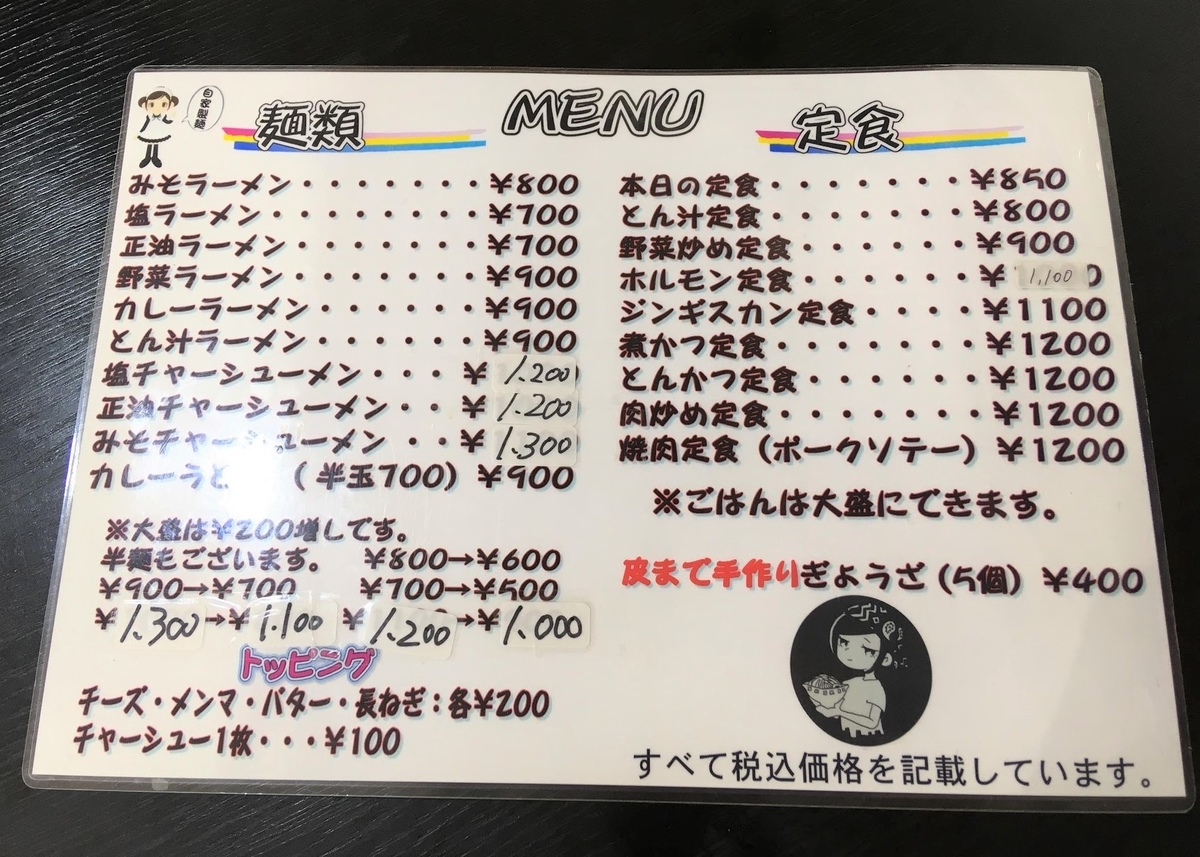 自家製麺
麺類
MENU
定食
みそラーメン・・・・・・・¥800
塩ラーメン・・・・・・・・¥700
正油ラーメン・・・・・・・¥700
野菜ラーメン・・・・・・・¥900
カレーラーメン・・・・・・¥900
とん汁ラーメン・・・・・・¥900
塩チャーシューメン・・・¥1.200
正油チャーシューメン・・¥1.200
みそチャーシューメン・・¥1.300
カレーうど (半玉700) ¥900
※大盛は¥200増しです。
半麺もございます。 ¥800→¥600
¥900→¥700 ¥700→¥500
¥1.300→¥1.100 ¥1.200→¥1.000
トッピング
チーズ・メンマ・バター・長ねぎ:各¥200
チャーシュー1枚・・・¥100
本日の定食・・・・・・・¥850
とん汁定食・・・・・・・¥800
野菜炒め定食・・・・・・¥900
ホルモン定食・・・・・・¥1,100
ジンギスカン定食・・・・¥1100
煮かつ定食・・・・・・・¥1200
とんかつ定食・・・・・・¥1200
肉炒め定食・・・・・・・¥1200
焼肉定食(ポークソテー)¥1200
※ごはんは大盛にできます。
皮まで手作りぎょうざ(5個)¥400
すべて税込価格を記載しています。